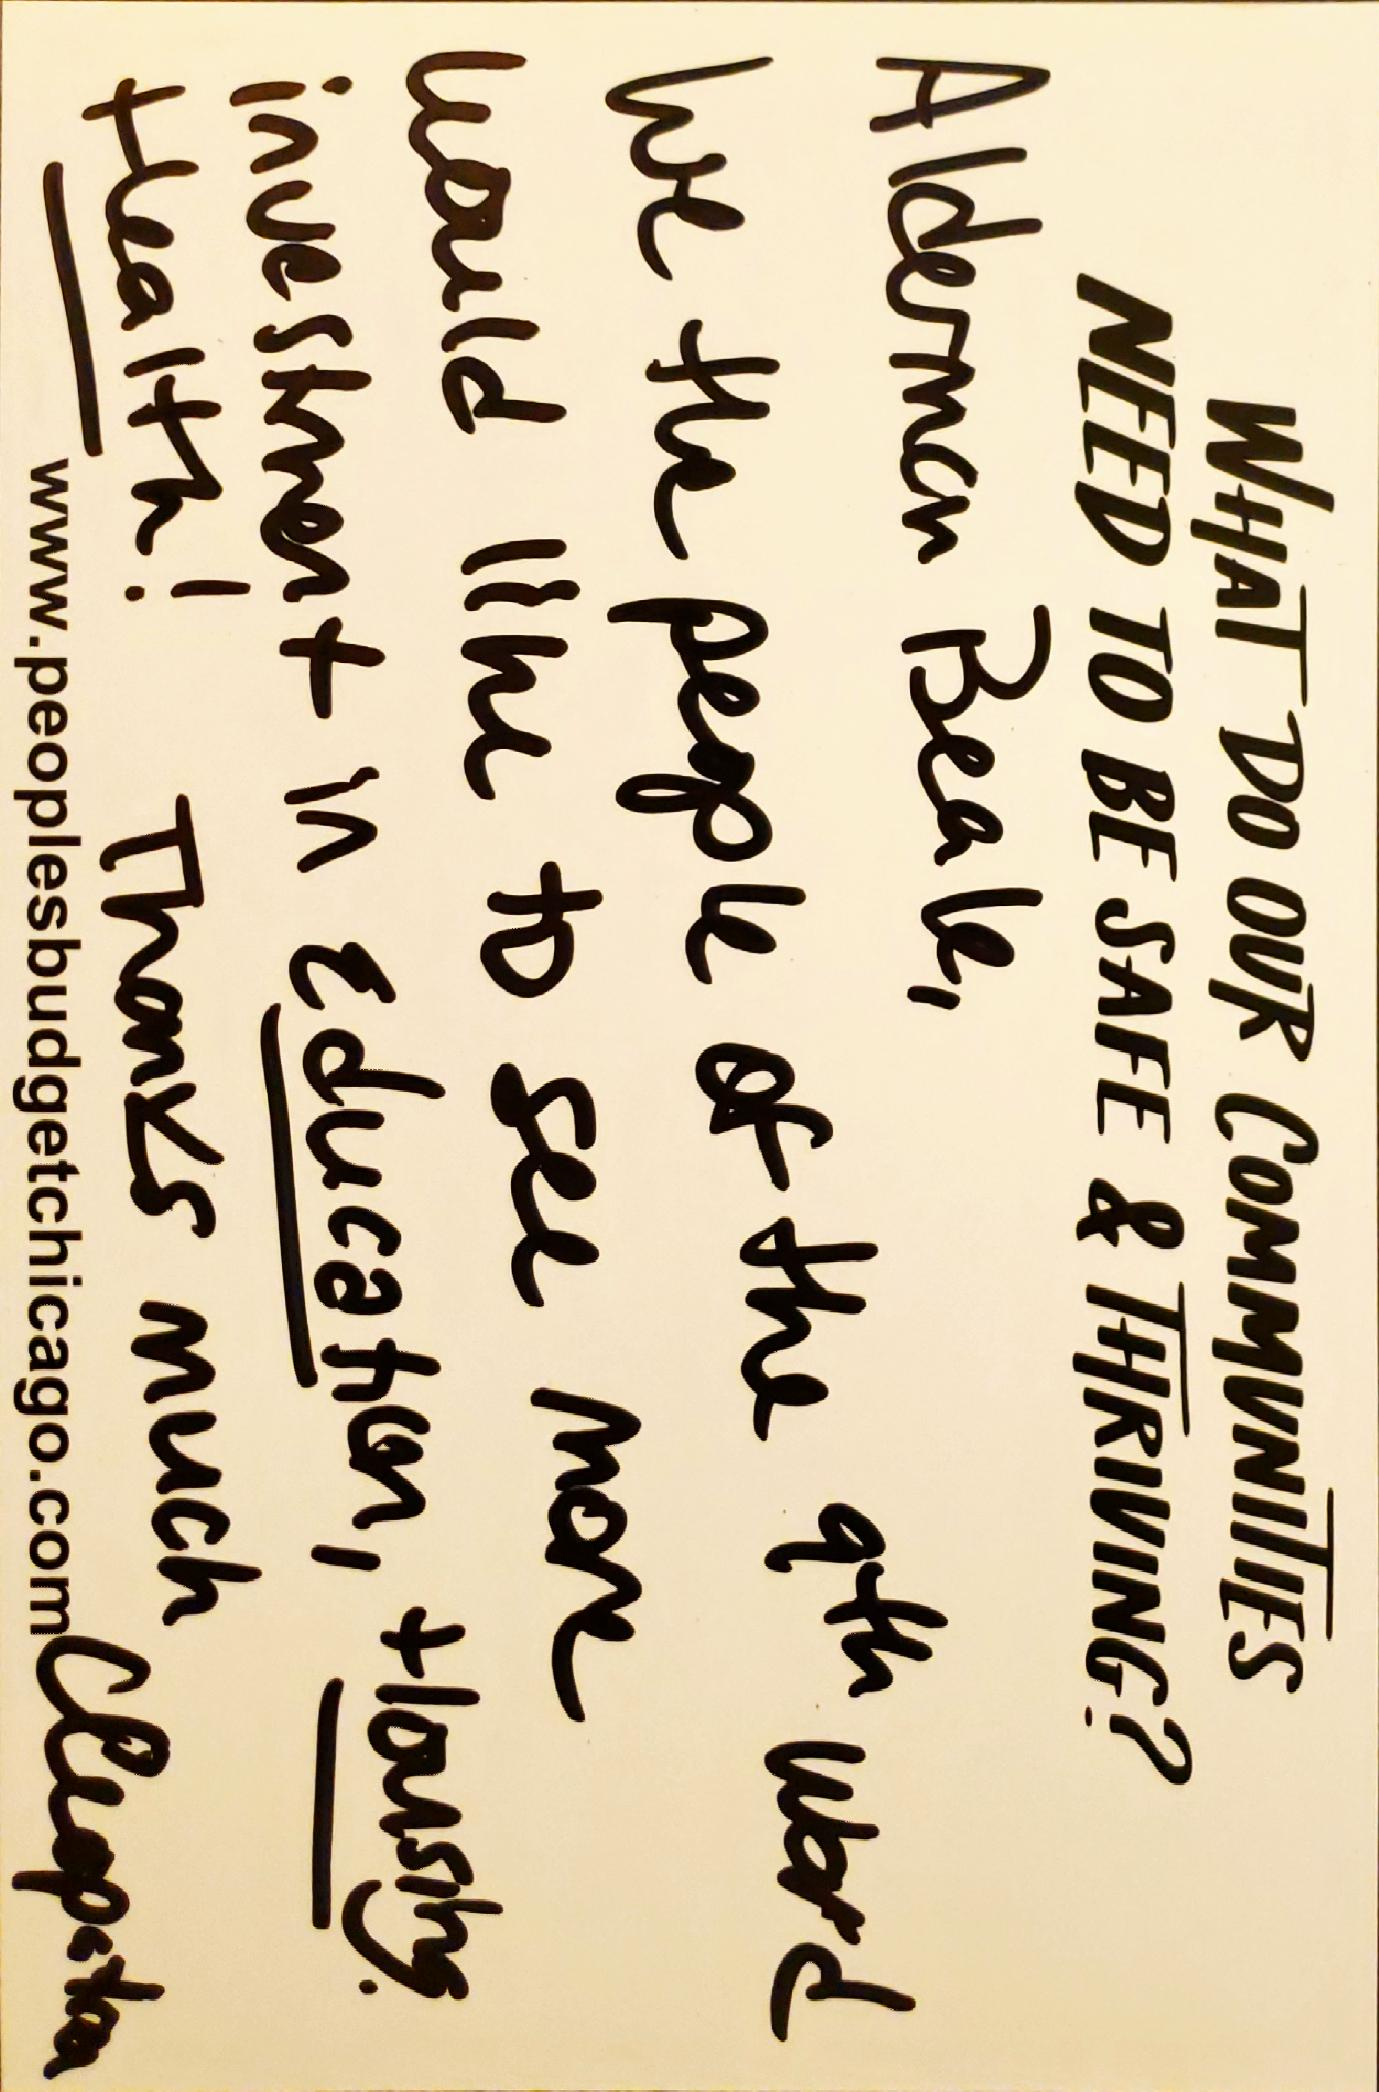 WHAT DO OUR COMMUNITIES
NEED TO BE SAFE & THRIVING?
Alderman Beale,
We the people of the 9th Ward
would like to see more
investment in Education, Housing.
Health! Thanks much
www.peoplesbudgetchicago.com Cleopatra